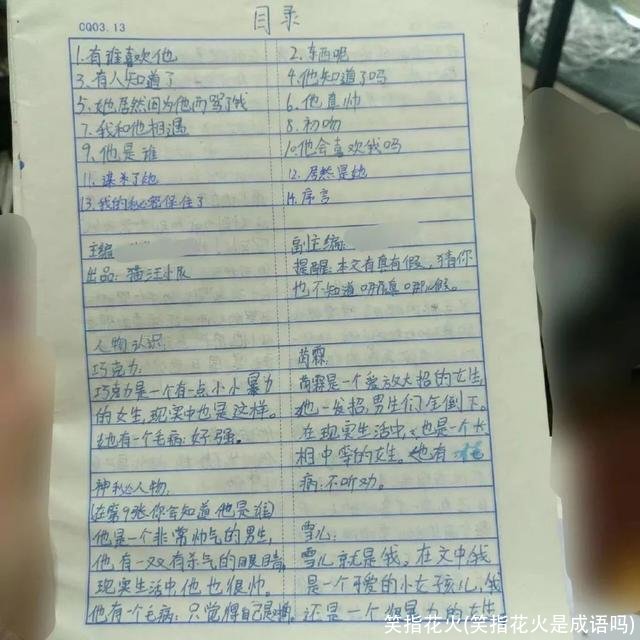 CQ03.13
目录
1.有谁喜欢他
2.东西呢
3.有人知道了
4.他知道了吗
5.她居然因为他而骂了我
6.他真帅
7.我和他相遇
8.初吻
9.他是谁
10.他会喜欢我吗
11.谋米了她
12.居然是她
13.我的秘密保住了
14.序言
主编
副主编
出品:猫汪小队
提醒:本文有真有假,猜你
也不知道哪真哪假。
人物认识:
巧克力:
巧克力是一个有一点小小暴力
的女生,现实中也是这样。
她有一个毛病:好强。
神秘人物:
(在第9张你会知道他是谁)
他是一个非常帅气的男生,
他有一双有杀气的眼睛
现实生活中他也很帅。
他有一个毛病:只觉得自己
芮霖:
芮霖是一个爱放大招的女生,
她一发招,男生们全倒下。
在现实生活中,她也是一个长
相中等的女生。她有
病:不听劝。
雪儿:
雪儿就是我,在文中我
是一个可爱的小女孩儿,我
还是一个 暴力的女生
笑指花火(笑指花火是成语吗)